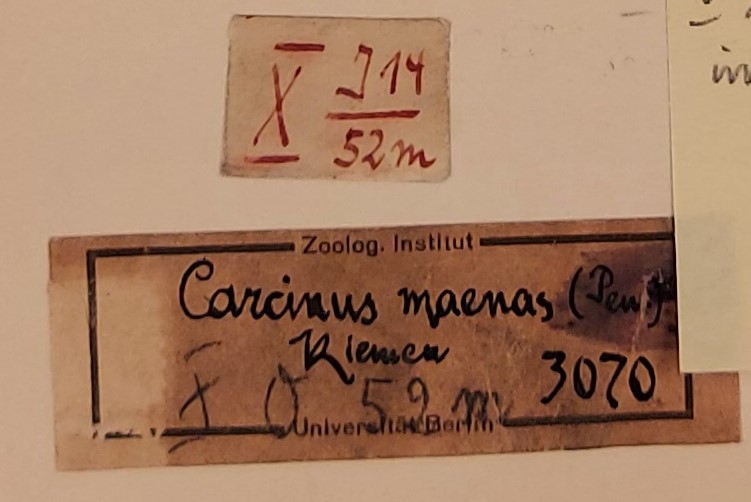 X J 14
52m
Zoolog. Institut
Carcinus maenas (Pen
Kiemen
3070
X 52 m
Universität Berlin